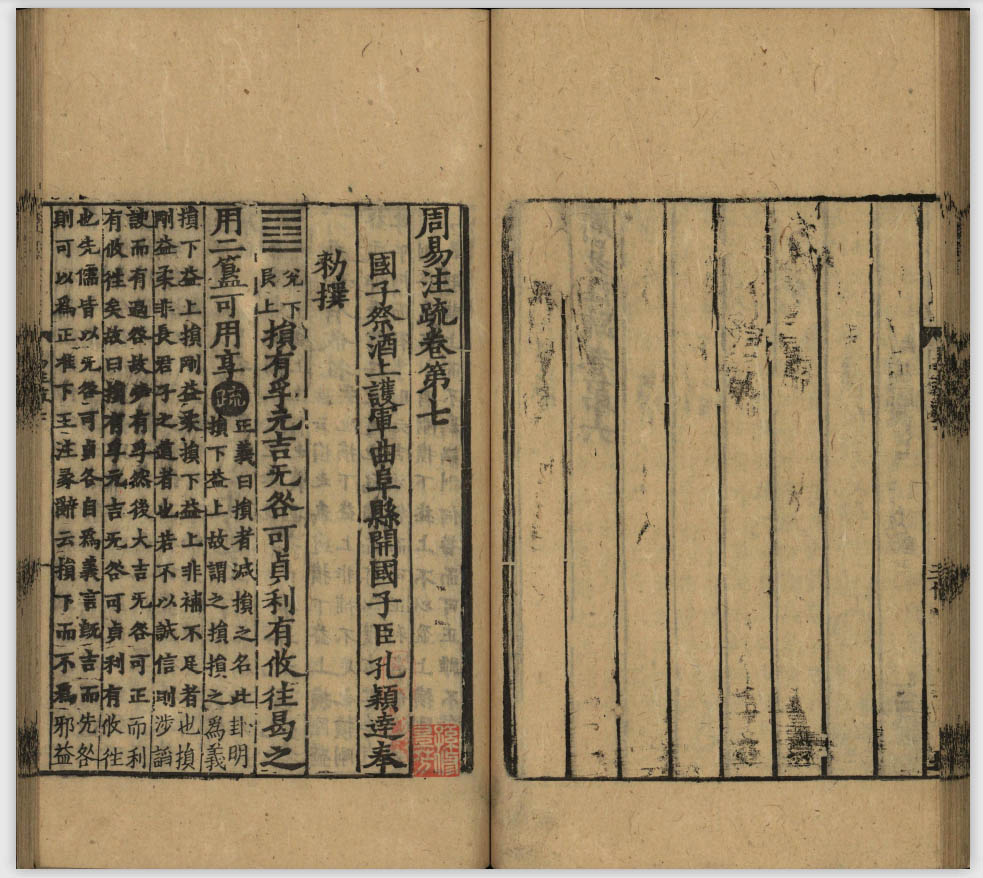 周易注疏卷第七
國子祭酒上護軍曲阜縣開國子臣孔穎達奉
勑撰
䷨
兌下
艮上
損有孚元吉无咎可貞利有攸往曷之
用二簋可用享
疏
正義曰損者減損之名此卦明
損下益上故謂之損損之爲義
損下益上損剛益柔損下益上非補不足者也損
剛益柔非長君子之道者也若不以誠信則涉謟
諛而有過咎故必有孚然後大吉无咎可正而利
有攸往矣故曰損有孚元吉无咎可貞利有攸往
也先儒皆以无咎可貞各自爲義言旣吉而无咎
則可以爲正准下王注彖辭云損下而不爲邪益